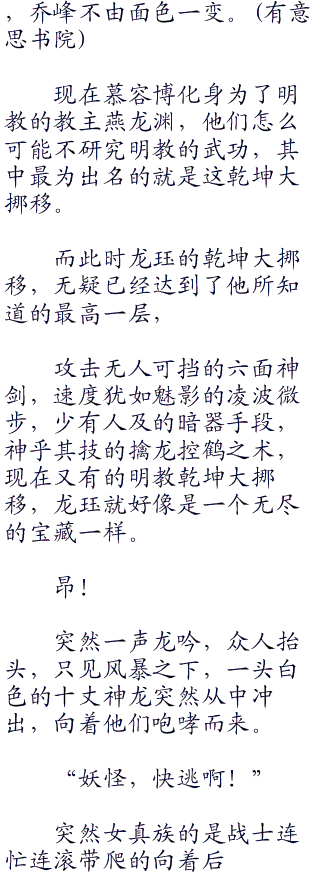 ，乔峰不由面色一变。(有意
思书院)
现在慕容博化身为了明
教的教主燕龙渊，他们怎么
可能不研究明教的武功，其
中最为出名的就是这乾坤大
挪移。
而此时龙珏的乾坤大挪
移，无疑已经达到了他所知
道的最高一层，
攻击无人可挡的六面神
剑，速度犹如魅影的凌波微
步，少有人及的暗器手段，
神乎其技的擒龙控鹤之术，
现在又有的明教乾坤大挪
移，龙珏就好像是一个无尽
的宝藏一样。
昂！
突然一声龙吟，众人抬
头，只见风暴之下，一头白
色的十丈神龙突然从中冲
出，向着他们咆哮而来。
“妖怪，快逃啊！”
突然女真族的是战士连
忙连滚带爬的向着后